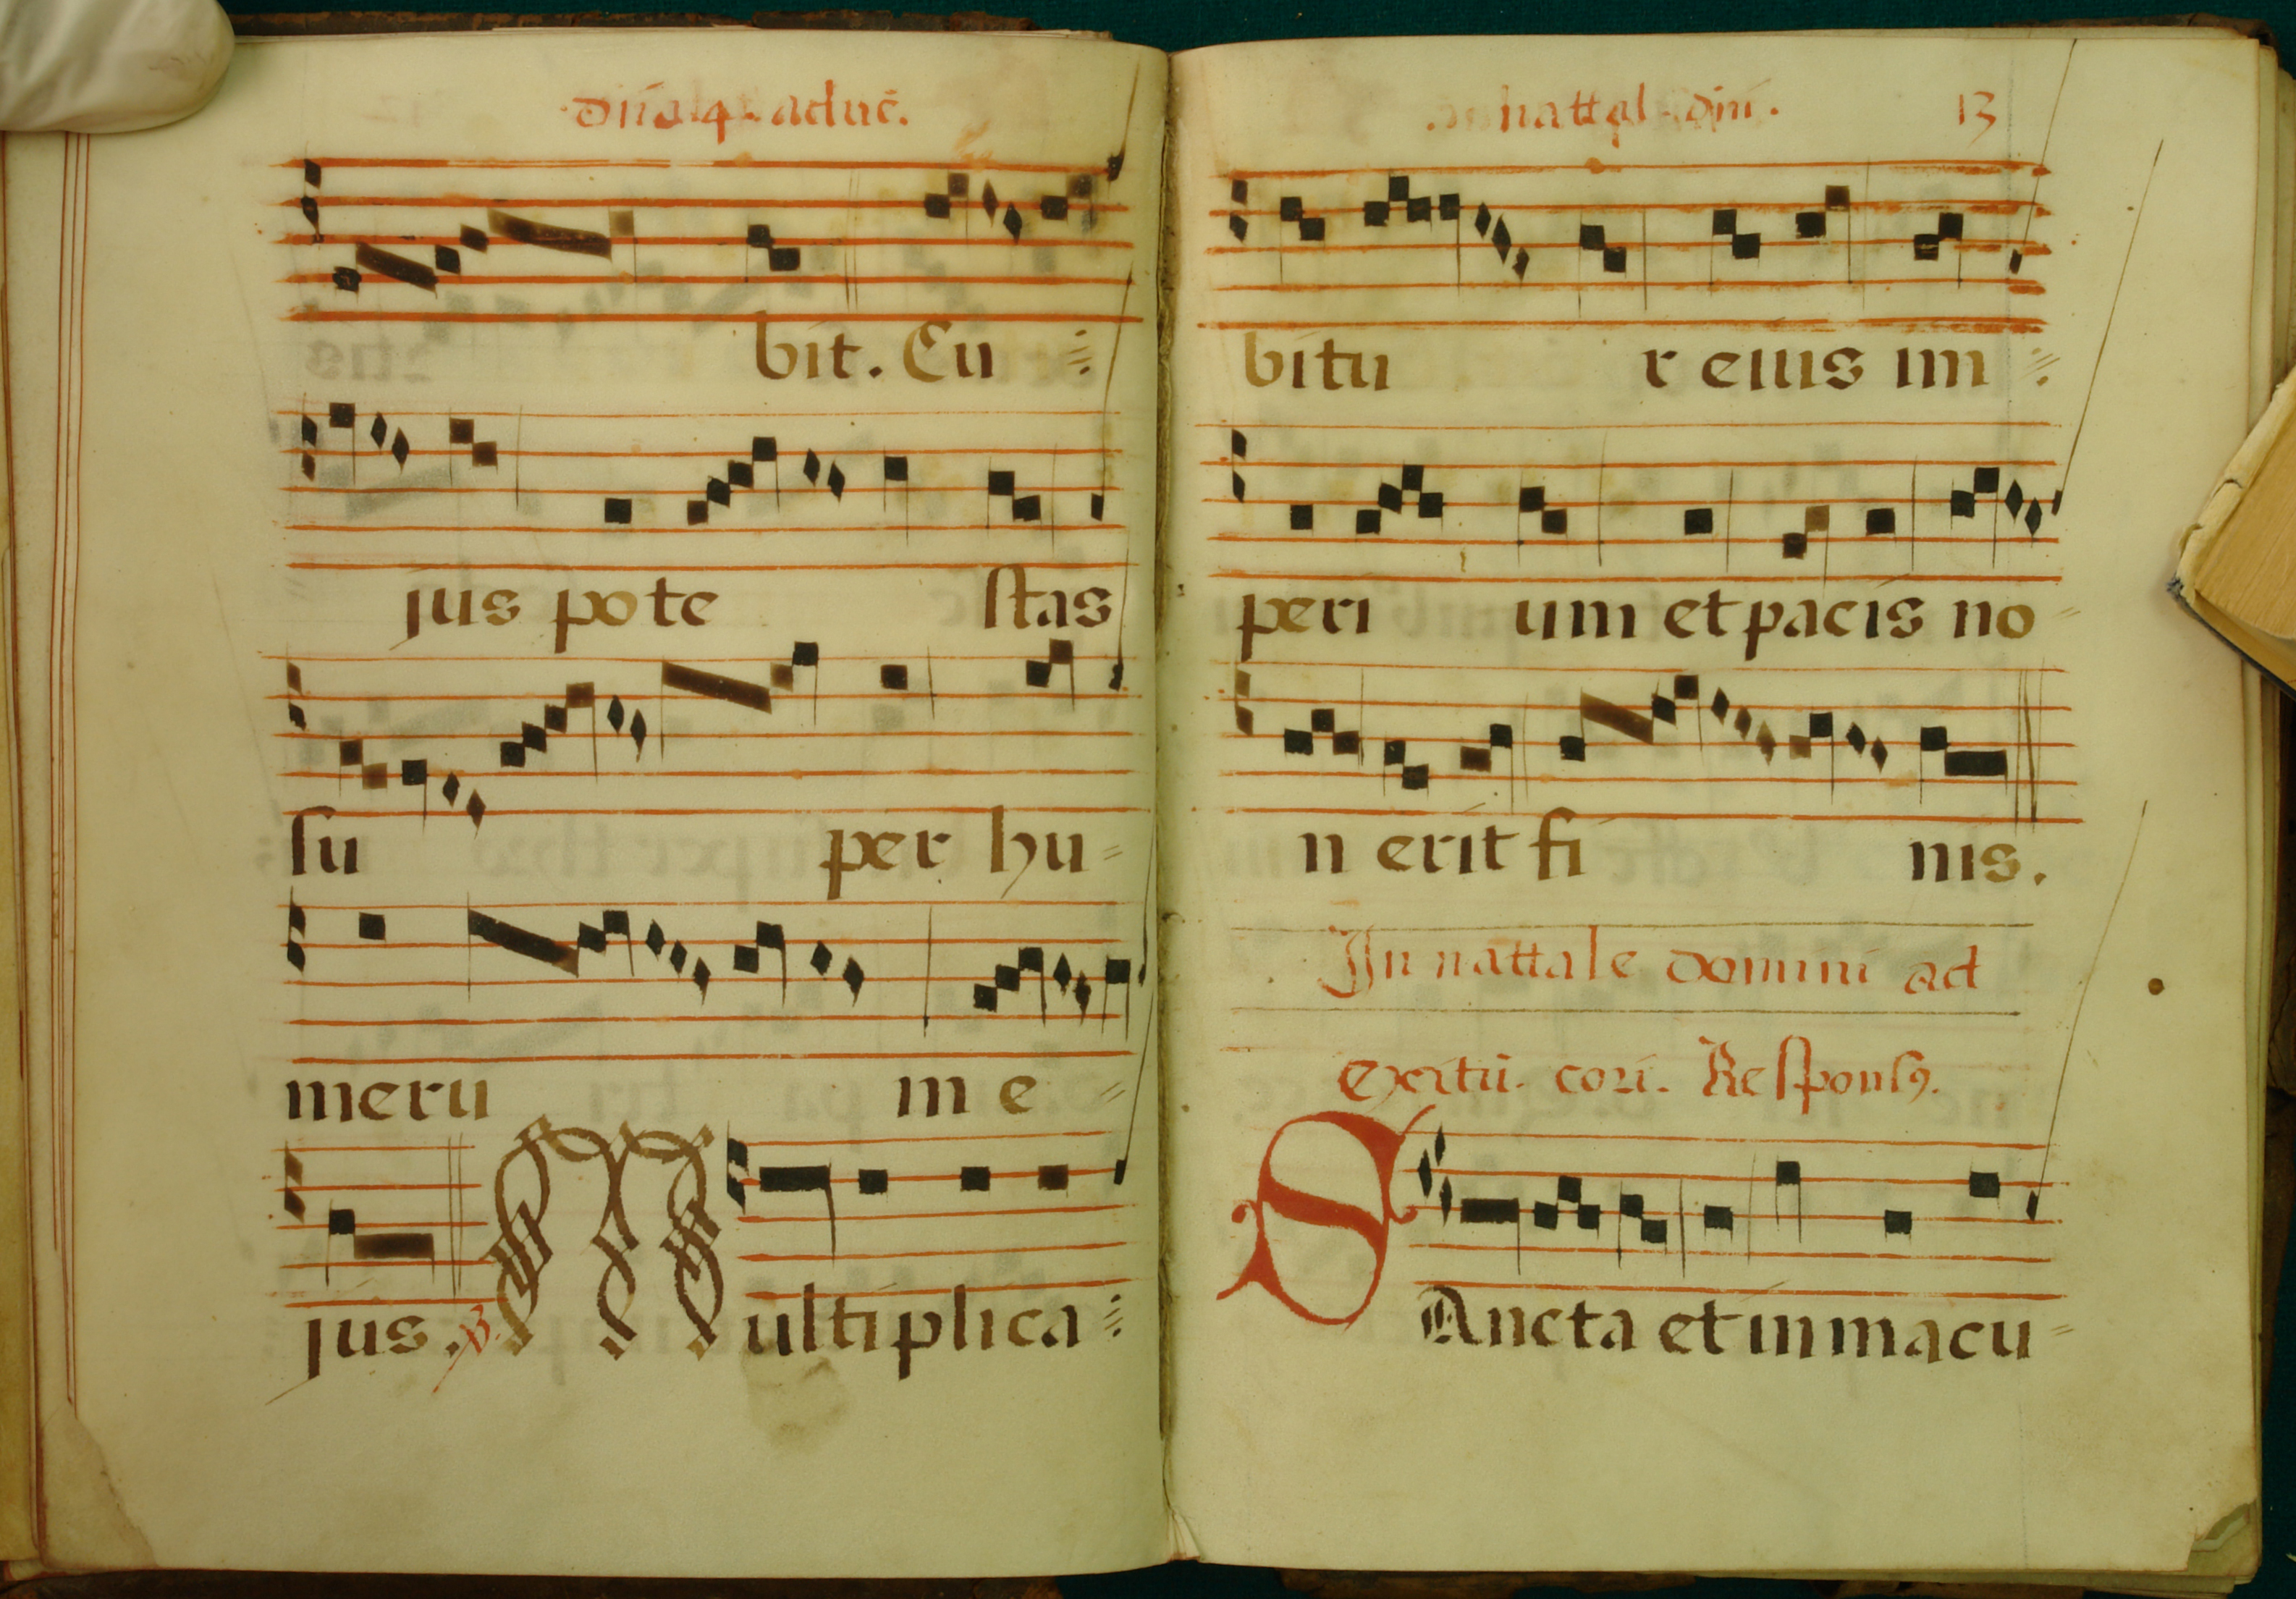 dñica 4. aduē.
bit. Cu
jus pote stas
su per hu
meru m e
jus. ℣. Multiplica
In nattal. dñi. 13
bitu r eius im
peri um et pacis no
n erit fi nis.
In nattale domini ad
exitū. cori. Responsꝰ.
SAncta et inmacu